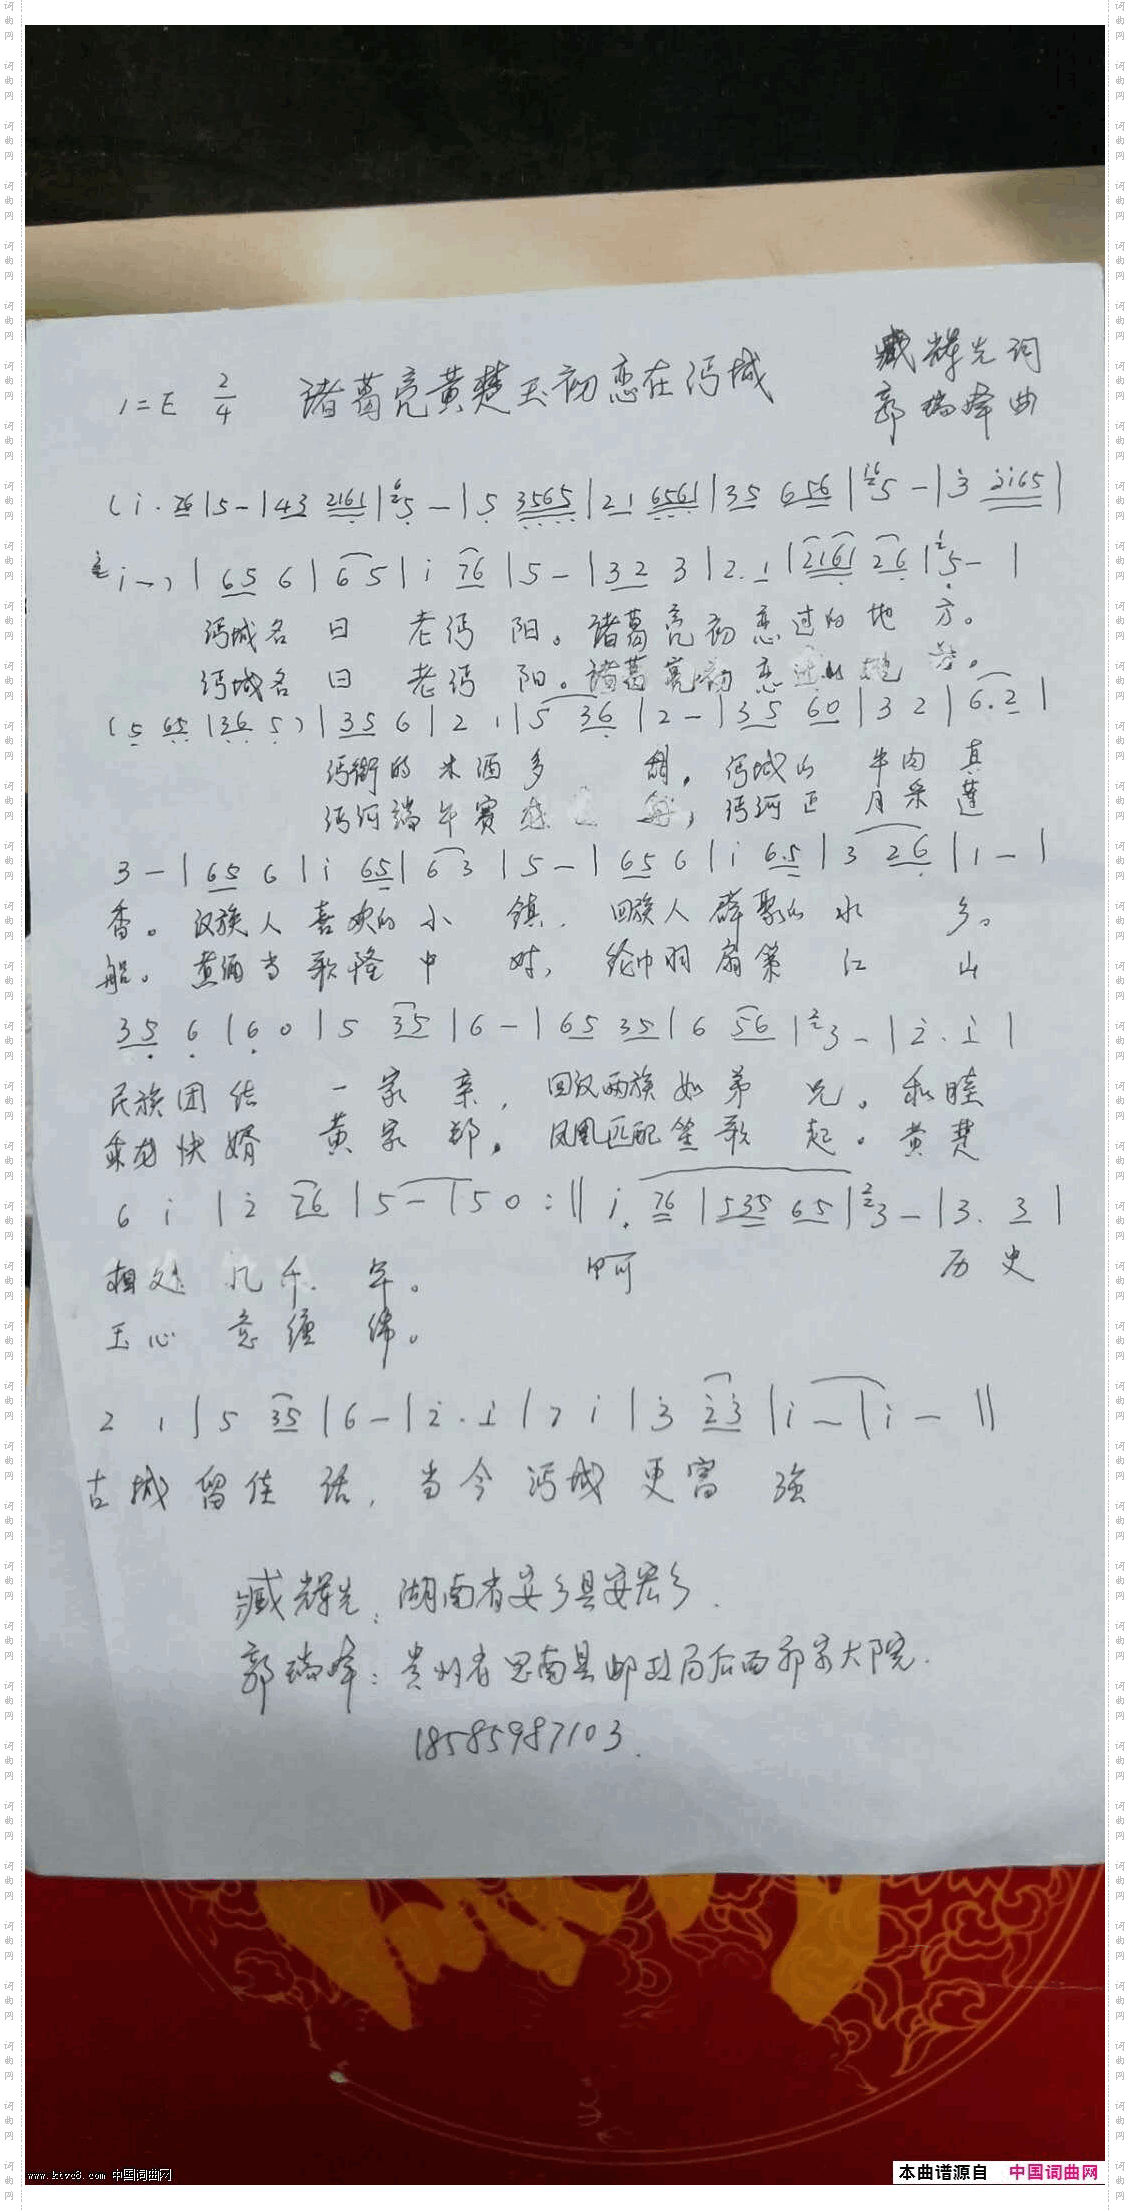 1=E 2/4 诸葛亮黄楚玉初恋在沔城 臧辉先词
郭瑞峰曲
(i·76|5-|43 2161|5-|5 3565|21 6561|35 656|5-|3 2i65|
i-)|65 6|65|i 76|5-|32 3|2.1|2161 26|5-|
沔城名曰老沔阳。诸葛亮初恋过的地方。
沔城名曰老沔阳。诸葛亮初恋过的地方。
(5 65|36 5)|35 6|2 1|5 36|2-|35 60|3 2|6.2|
沔街的米酒多甜,沔城的牛肉真
沔河端午赛,沔河正月采莲
3-|65 6|i 65|6 3|5-|65 6|i 6.5|3 26|1-|
香。汉族人喜欢的小镇,回族人群聚的水乡。
船。煮酒当歌隆中对,纶巾羽扇策江山
35 6|6 0|5 35|6-|65 35|6 56|3-|2.i|
民族团结一家亲,回汉两族如弟兄。和睦
乘龙快婿黄家郎。凤凰匹配笙歌起。黄楚
6 i|2 76|5-|50:‖i.76|535 65|3-|3.3|
相处几千年。呵历史
玉心意缠绵。
2 1|5 35|6-|2.i|7 i|3 23|i-|i-‖
古城留佳话,当今沔城更富强
臧辉先:湖南省安乡县安宏乡.
郭瑞峰:贵州省思南县邮政局后面郭家大院.
18585987103.
www.ktvc8.com 中国词曲网
本曲谱源自 中国词曲网